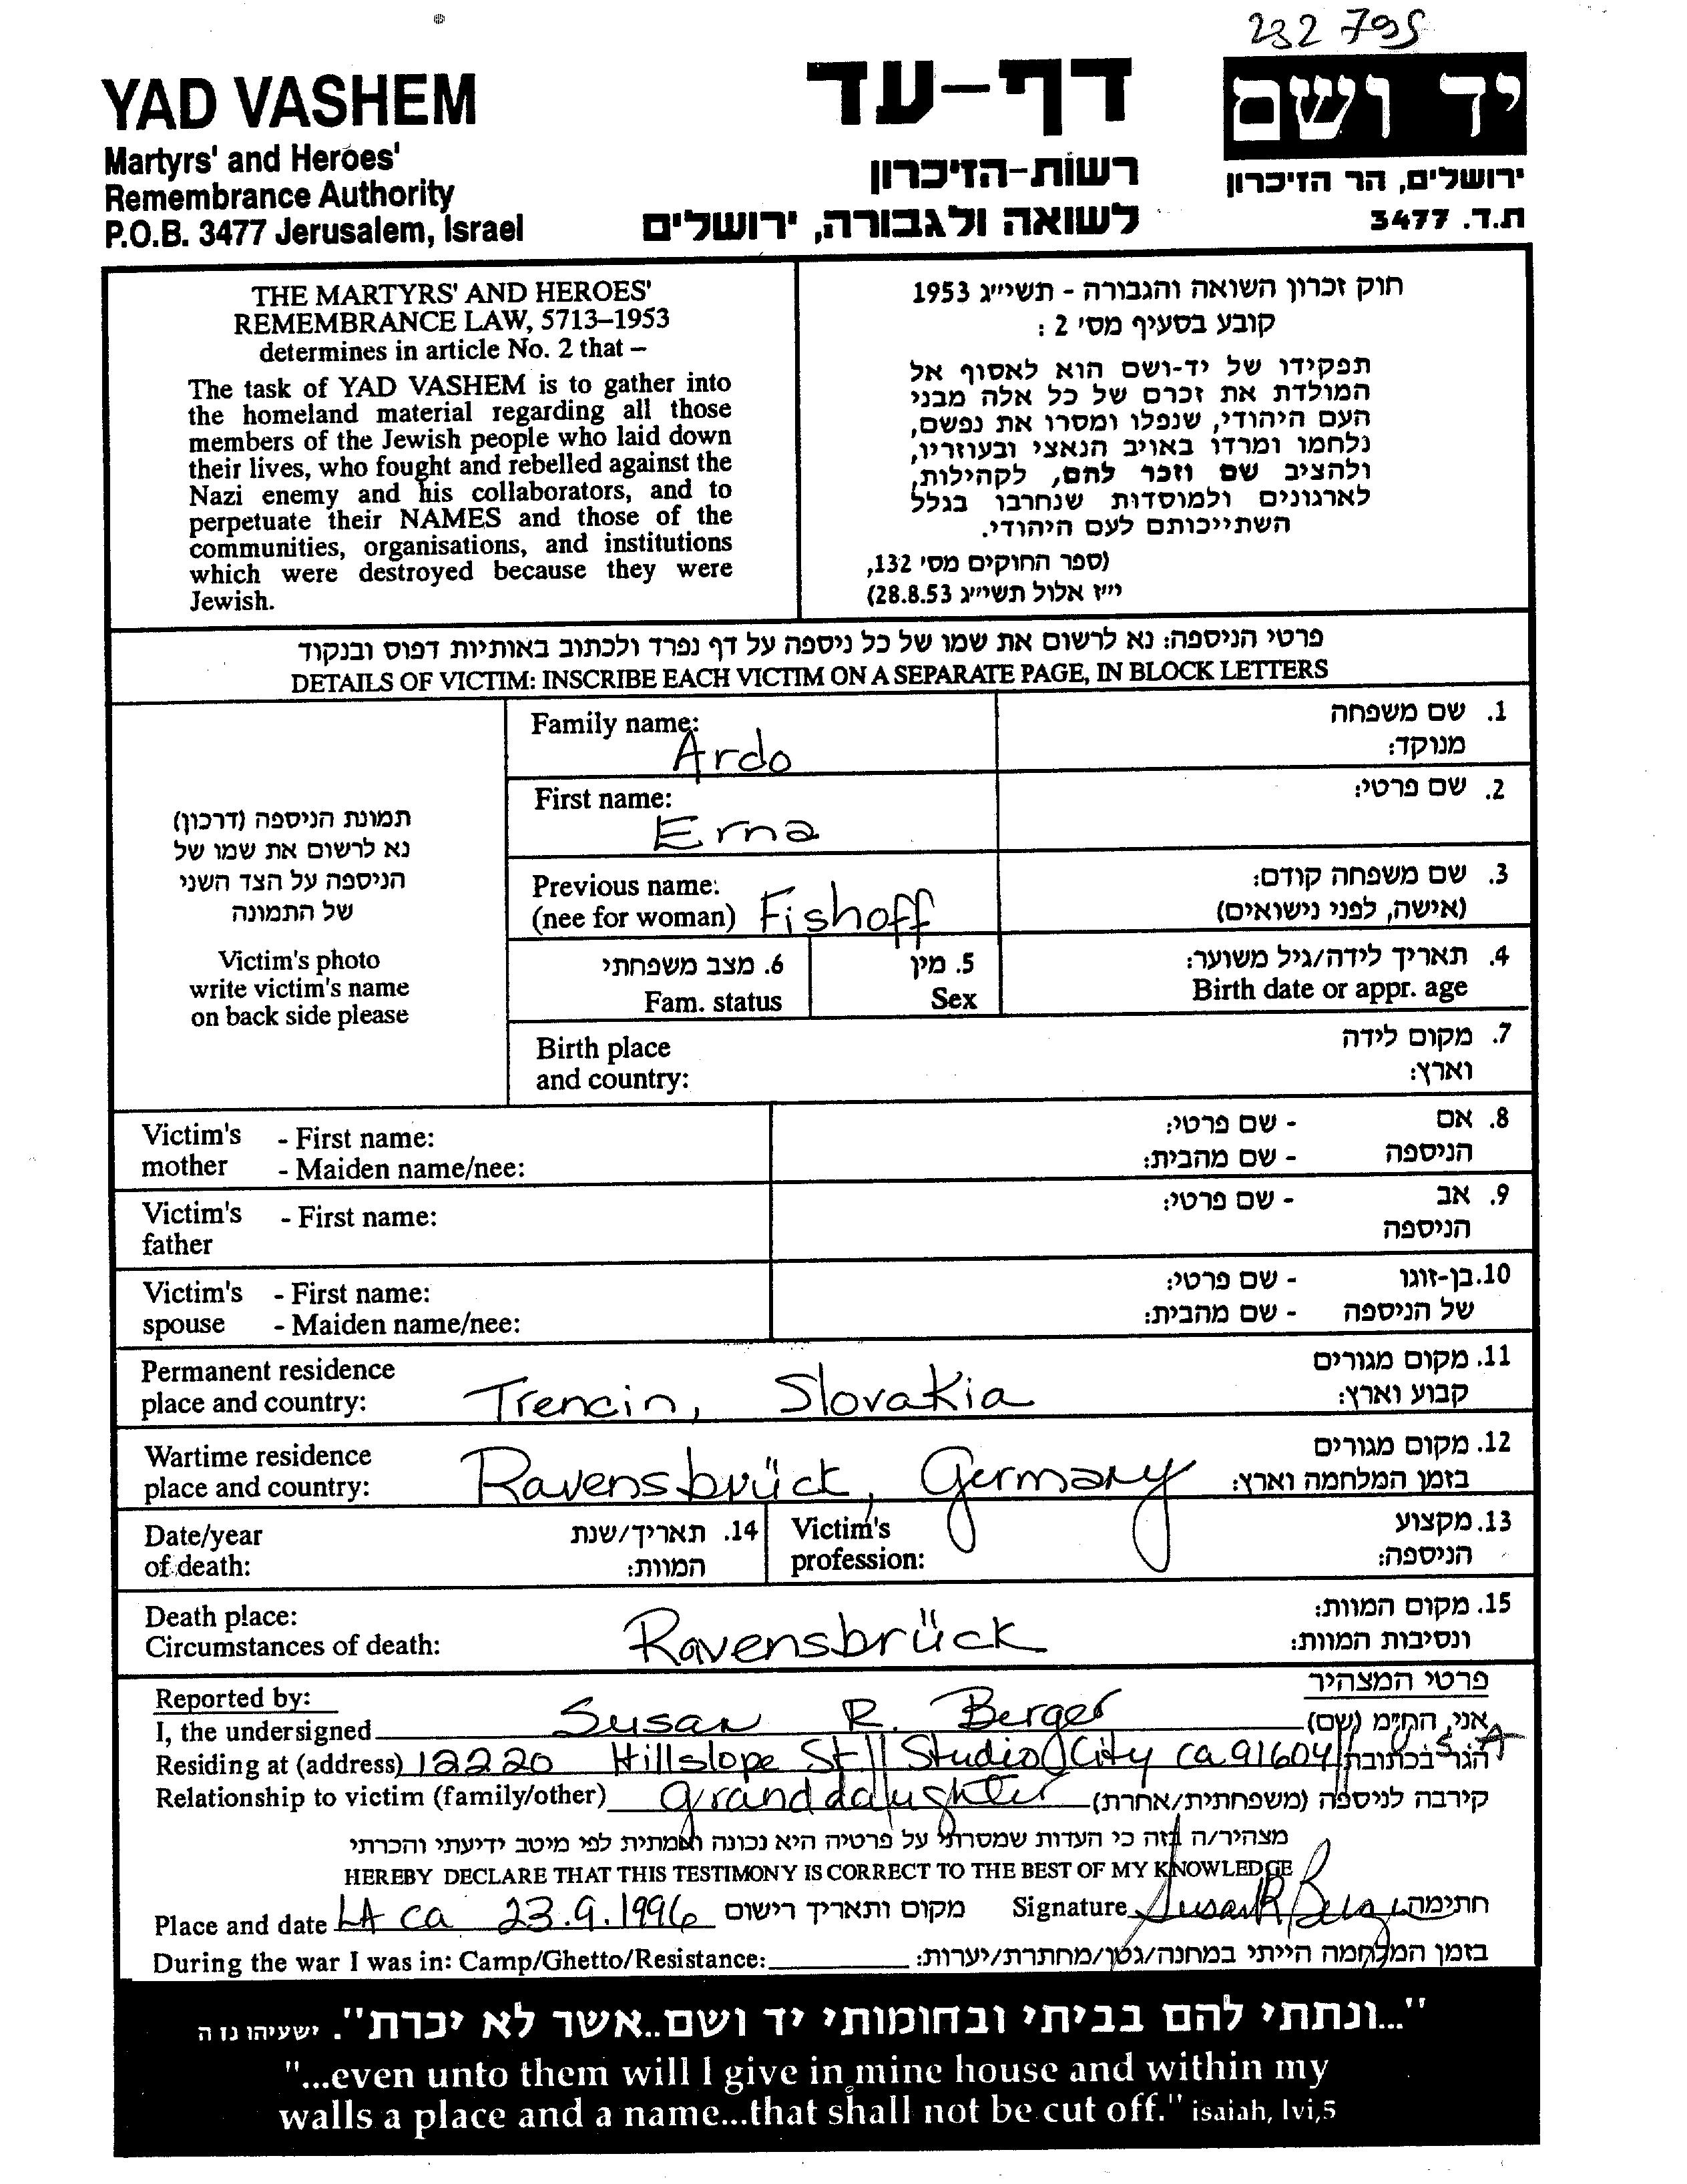 232 795
YAD VASHEM
Martyrs' and Heroes'
Remembrance Authority
P.O.B. 3477 Jerusalem, Israel
דף-עד
רשות-הזיכרון
לשואה ולגבורה, ירושלים
יד ושם
ירושלים, הר הזיכרון
ת.ד. 3477
THE MARTYRS' AND HEROES'
REMEMBRANCE LAW, 5713–1953
determines in article No. 2 that –
The task of YAD VASHEM is to gather into
the homeland material regarding all those
members of the Jewish people who laid down
their lives, who fought and rebelled against the
Nazi enemy and his collaborators, and to
perpetuate their NAMES and those of the
communities, organisations, and institutions
which were destroyed because they were
Jewish.
חוק זכרון השואה והגבורה - תשי״ג 1953
קובע בסעיף מס׳ 2 :
תפקידו של יד-ושם הוא לאסוף אל
המולדת את זכרם של כל אלה מבני
העם היהודי, שנפלו ומסרו את נפשם,
נלחמו ומרדו באויב הנאצי ובעוזריו,
ולהציב שם וזכר להם, לקהילות,
לארגונים ולמוסדות שנחרבו בגלל
השתייכותם לעם היהודי.
(ספר החוקים מס׳ 132,
י״ז אלול תשי״ג 28.8.53)
פרטי הניספה: נא לרשום את שמו של כל ניספה על דף נפרד ולכתוב באותיות דפוס ובנקוד
DETAILS OF VICTIM: INSCRIBE EACH VICTIM ON A SEPARATE PAGE, IN BLOCK LETTERS
תמונת הניספה (דרכון)
נא לרשום את שמו של
הניספה על הצד השני
של התמונה
Victim's photo
write victim's name
on back side please
Family name: Ardo 1. שם משפחה
מנוקד:
First name: Erna 2. שם פרטי:
Previous name: 3. שם משפחה קודם:
(nee for woman) Fishoff (אישה, לפני נישואים)
6. מצב משפחתי 5. מין 4. תאריך לידה/גיל משוער:
Fam. status Sex Birth date or appr. age
Birth place 7. מקום לידה
and country: וארץ:
Victim's - First name: - שם פרטי: 8. אם
mother - Maiden name/nee: - שם מהבית: הניספה
Victim's - First name: - שם פרטי: 9. אב
father הניספה
Victim's - First name: - שם פרטי: 10. בן-זוגו
spouse - Maiden name/nee: - שם מהבית: של הניספה
Permanent residence 11. מקום מגורים
place and country: Trencin, Slovakia קבוע וארץ:
Wartime residence 12. מקום מגורים
place and country: Ravensbrück, Germany בזמן המלחמה וארץ:
Date/year 14. תאריך/שנת Victim's 13. מקצוע
of death: המוות: profession: הניספה:
Death place: 15. מקום המוות:
Circumstances of death: Ravensbrück ונסיבות המוות:
Reported by: פרטי המצהיר
I, the undersigned Susan R. Berger אני, הח״מ (שם)
Residing at (address) 12220 Hillslope St Studio City Ca 91604 U.S.A הגר בכתובת
Relationship to victim (family/other) granddaughter קירבה לניספה (משפחתית/אחרת)
מצהיר/ה בזה כי העדות שמסרתי על פרטיה היא נכונה ואמתית לפי מיטב ידיעתי והכרתי
HEREBY DECLARE THAT THIS TESTIMONY IS CORRECT TO THE BEST OF MY KNOWLEDGE
Place and date LA Ca 23.9.1996 מקום ותאריך רישום Signature Susan R Berger חתימה
During the war I was in: Camp/Ghetto/Resistance: בזמן המלחמה הייתי במחנה/גטו/מחתרת/יערות:
"...ונתתי להם בביתי ובחומותי יד ושם..אשר לא יכרת". ישעיהו נו ה
"...even unto them will I give in mine house and within my
walls a place and a name...that shall not be cut off." isaiah, lvi,5